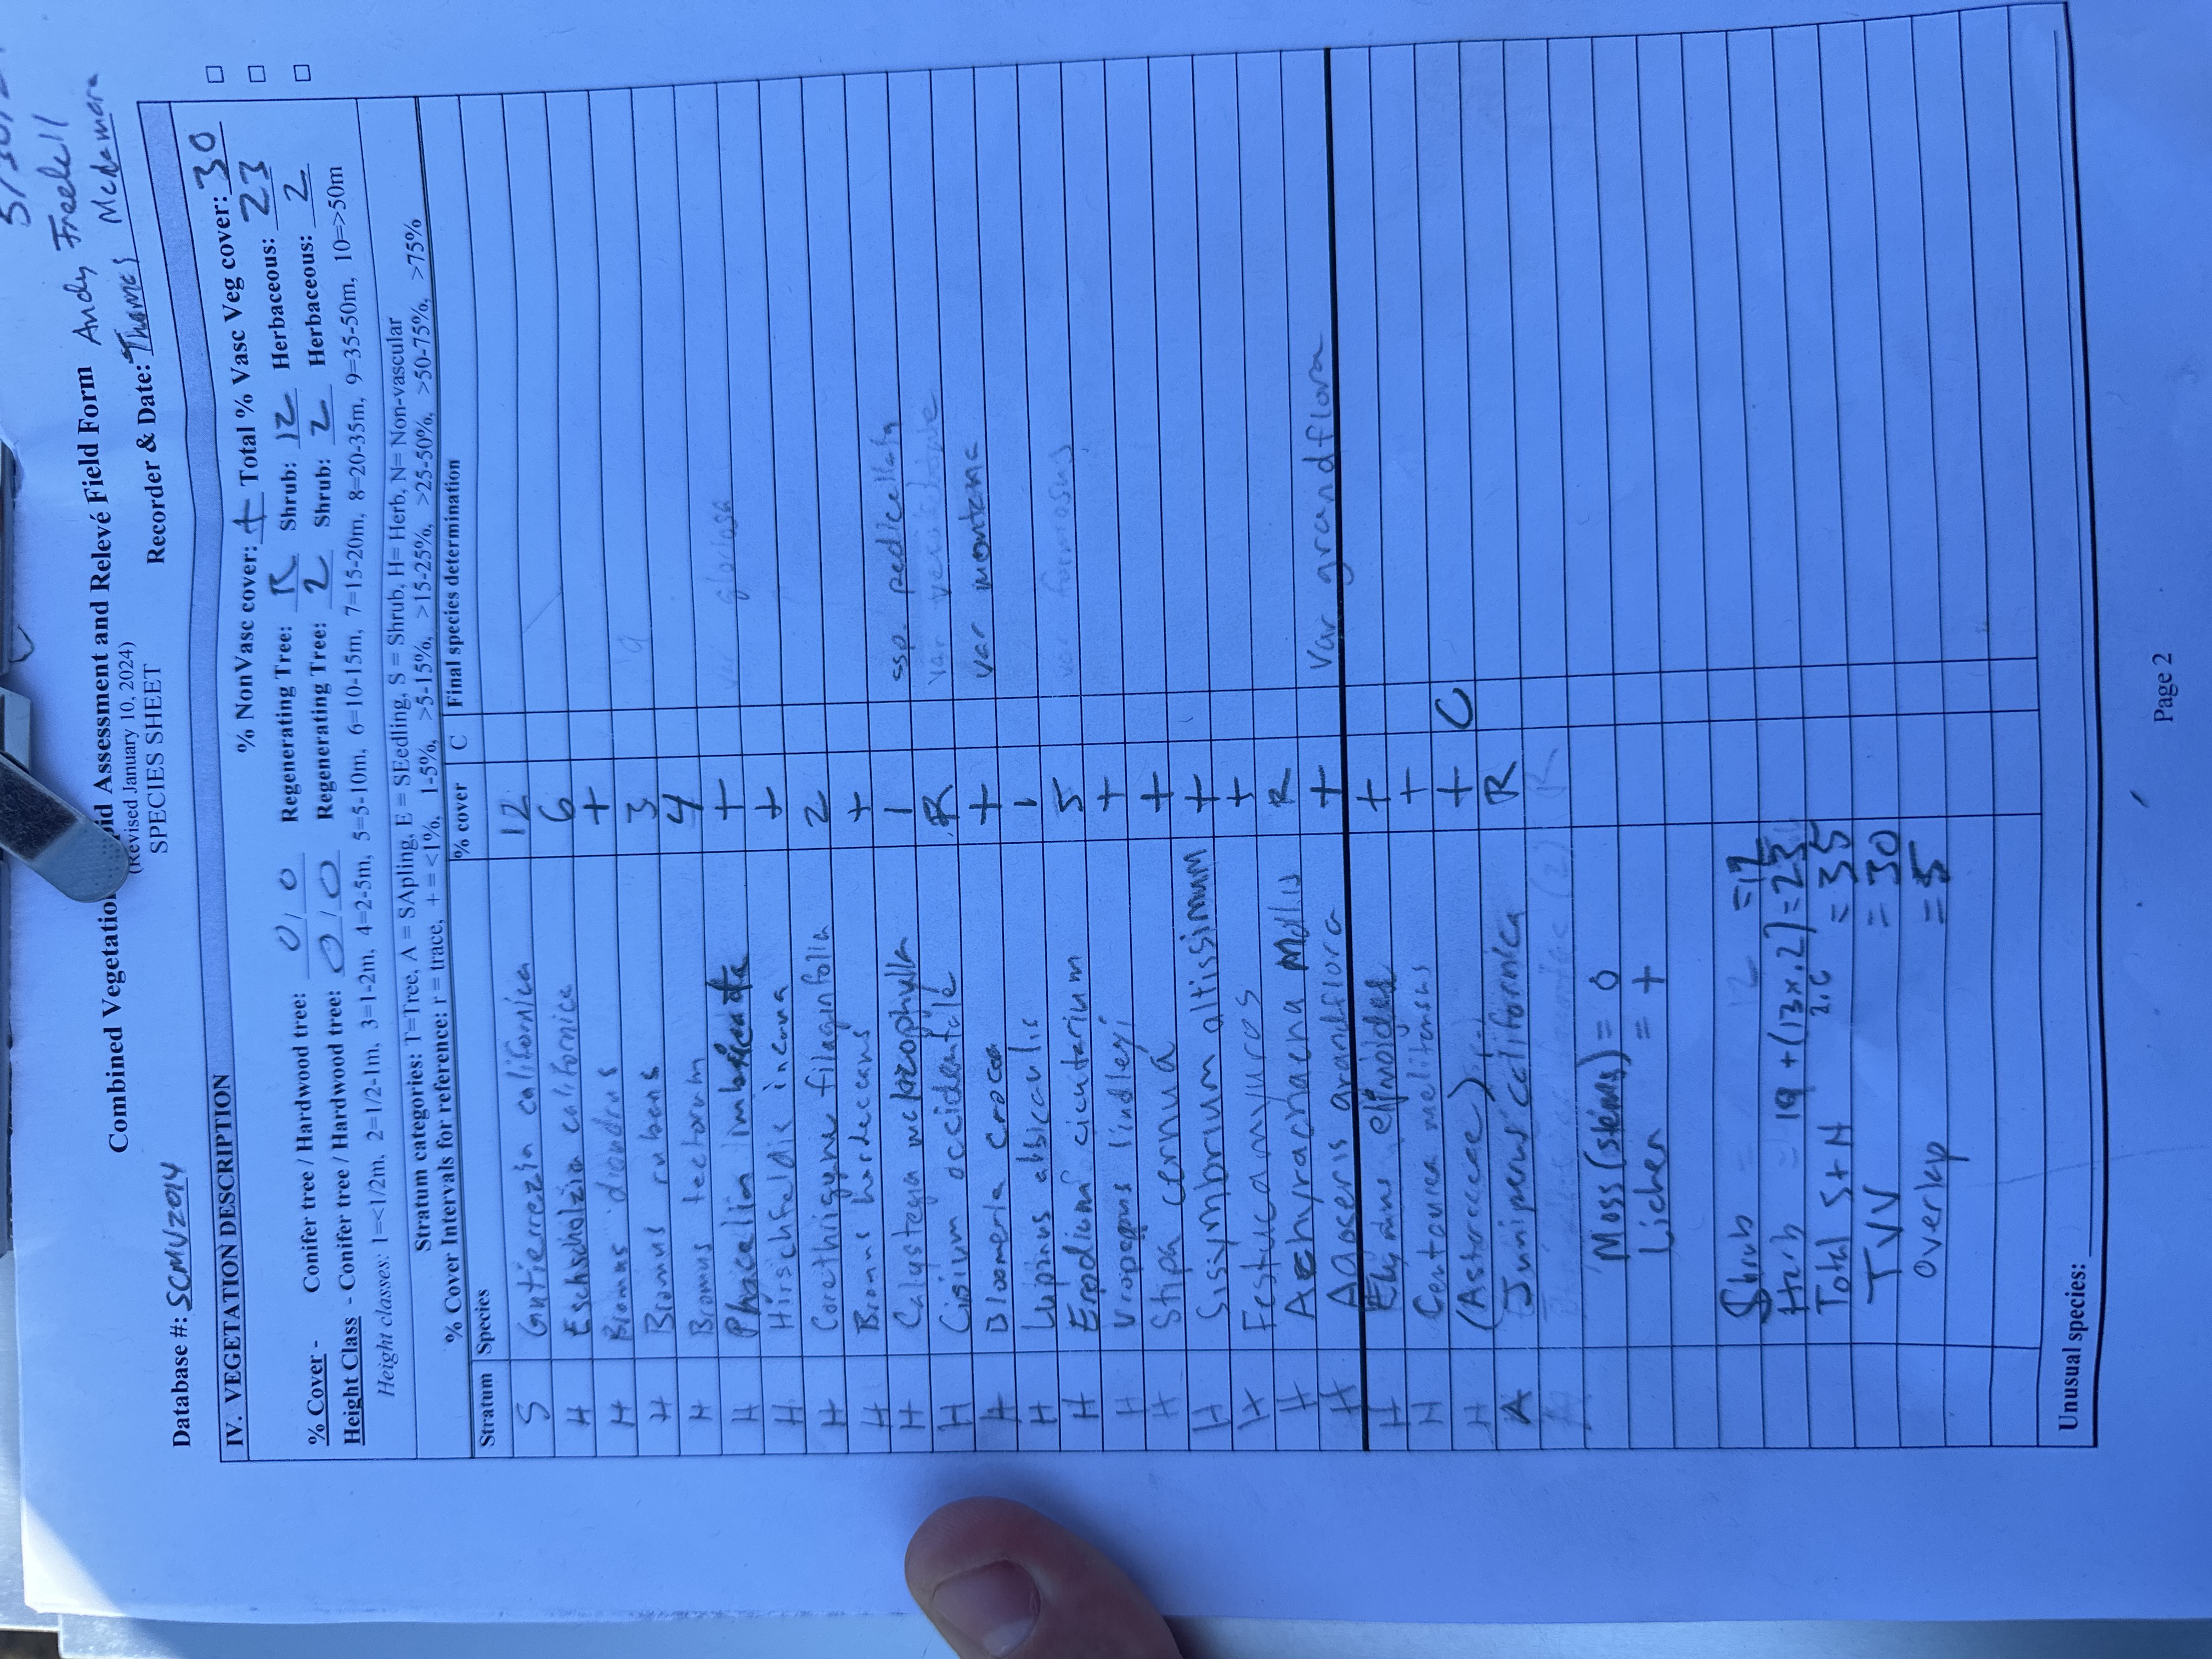 5/30/2
Combined Vegetation Rapid Assessment and Relevé Field Form Andy Freelell
(Revised January 10, 2024)
SPECIES SHEET
Database #: SCMV2014
Recorder & Date: Thomas McNamara
IV. VEGETATION DESCRIPTION
% NonVasc cover: + Total % Vasc Veg cover: 30
% Cover - Conifer tree / Hardwood tree: 0 / 0 Regenerating Tree: R Shrub: 12 Herbaceous: 23
Height Class - Conifer tree / Hardwood tree: 0 / 0 Regenerating Tree: 2 Shrub: 2 Herbaceous: 2
Height classes: 1=<1/2m, 2=1/2-1m, 3=1-2m, 4=2-5m, 5=5-10m, 6=10-15m, 7=15-20m, 8=20-35m, 9=35-50m, 10=>50m
Stratum categories: T=Tree, A = SApling, E = SEedling, S = Shrub, H= Herb, N= Non-vascular
% Cover Intervals for reference: r = trace, + = <1%, 1-5%, >5-15%, >15-25%, >25-50%, >50-75%, >75%
Stratum Species % cover C Final species determination
S Gutierrezia californica 12
H Eschscholzia californica 6
H Bromus diandrus +
H Bromus rubens 3
H Bromus tectorum 4
H Phacelia imbricata +
H Hirschfeldia incana +
H Corethrogyne filaginifolia 2
H Bromus hordeceans +
H Calystegia macrophylla 1 ssp. pedicellata
H Cirsium occidentale R var
H Bloomeria crocea + var montana
H Lupinus albicaulis 1
H Erodium cicutarium 5
H Uropappus lindleyi +
H Stipa cernua +
H Sisymbrium altissimum +
H Festuca myuros +
H Achyrachaena Mollis R
H Agoseris grandiflora + var grandflora
H Elymus elymoides +
H Centaurea melitensis +
H (Asteraceae) + C
A Juniperus californica R
Moss (stems) = 0
Lichen = +
Shrub = 12
Herb = 19 + (13 x .2) = 23
2.6
Total S + H = 35
TVV = 30
Overlap = 5
Unusual species:
Page 2